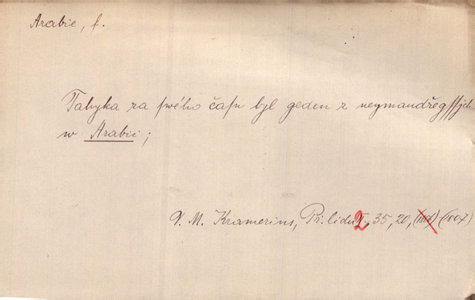 Arabie, f.
Tabyka za swého času byl geden z neymaudřegssjch
w Arabii;
V. M. Kramerius, Př. lidu 2, 35, 20, (1007)